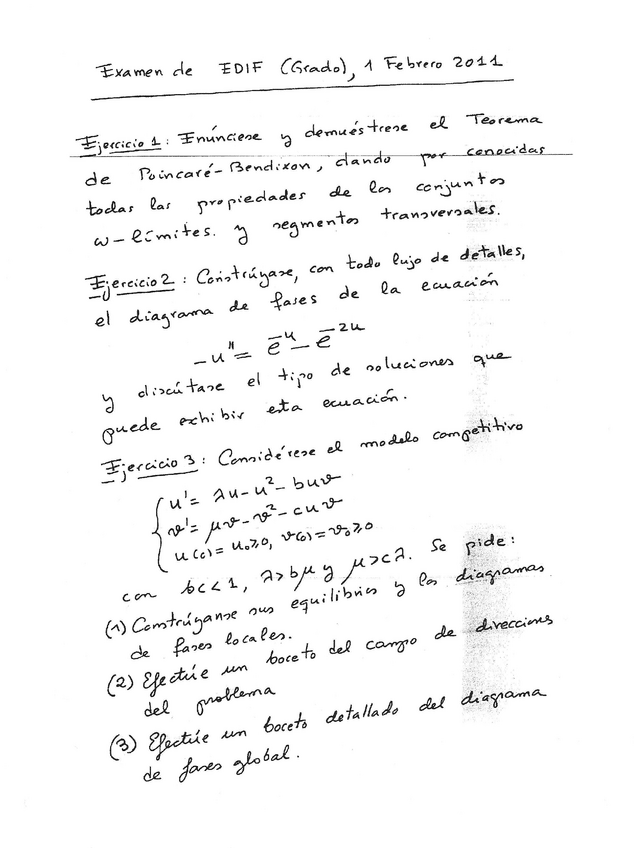 Examen de EDIF (Grado), 1 Febrero 2011
Ejercicio 1: Enúnciese y demuéstrese el Teorema
de Poincaré-Bendixon, dando por conocidas
todas las propiedades de los conjuntos
ω-límites. y segmentos transversales.
Ejercicio 2: Constrúyase, con todo lujo de detalles,
el diagrama de fases de la ecuación
-u'' = e^{-u} - e^{-2u}
y discútase el tipo de soluciones que
puede exhibir esta ecuación.
Ejercicio 3: Considérese el modelo competitivo
u' = λu - u² - buv
v' = μv - v² - cuv
u(0) = u₀ ≥ 0, v(0) = v₀ ≥ 0
con bc < 1, λ > bμ y μ > cλ. Se pide:
(1) Constrúyanse sus equilibrios y los diagramas
de fases locales.
(2) Efectúe un boceto del campo de direcciones
del problema
(3) Efectúe un boceto detallado del diagrama
de fases global.